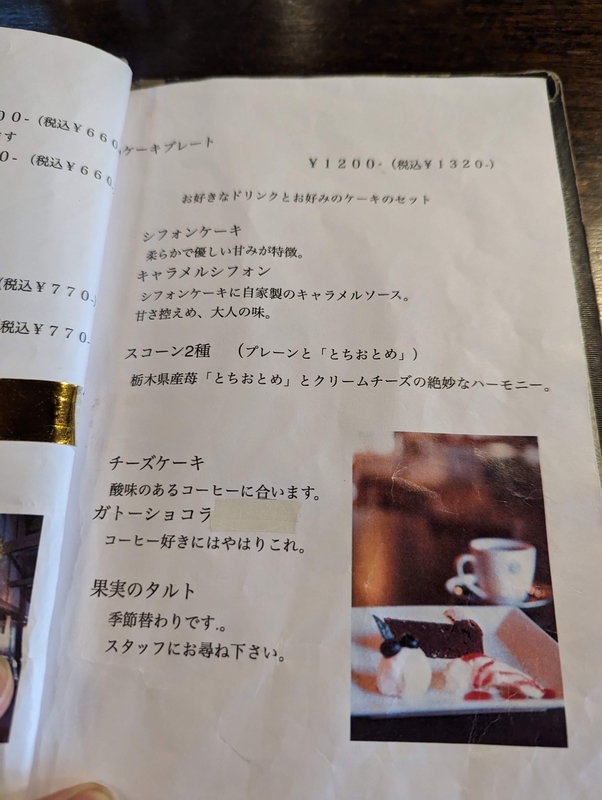 00-（税込￥660
す
0-（税込￥660
（税込￥770-
税込￥770-
ケーキプレート
￥1200-（税込￥1320-）
お好きなドリンクとお好みのケーキのセット
シフォンケーキ
柔らかで優しい甘みが特徴。
キャラメルシフォン
シフォンケーキに自家製のキャラメルソース。
甘さ控えめ、大人の味。
スコーン2種　（プレーンと「とちおとめ」）
栃木県産苺「とちおとめ」とクリームチーズの絶妙なハーモニー。
チーズケーキ
酸味のあるコーヒーに合います。
ガトーショコラ
コーヒー好きにはやはりこれ。
果実のタルト
季節替わりです.。
スタッフにお尋ね下さい。